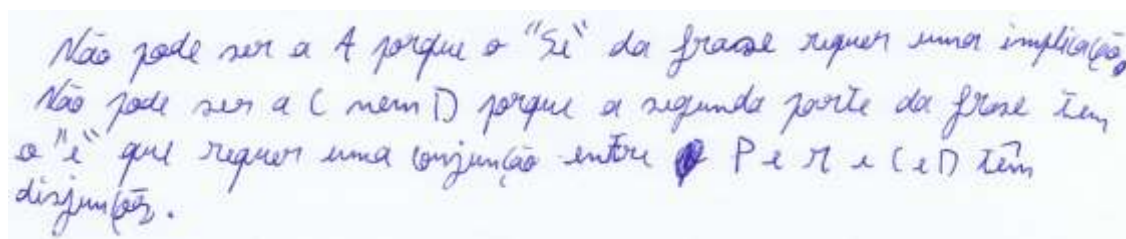 Não pode ser a A porque o "Se" da frase requer uma implicação,
Não pode ser a C nem D porque a segunda parte da frase tem
o "e" que requer uma conjunção entre P e R e C e D têm
disjunções.